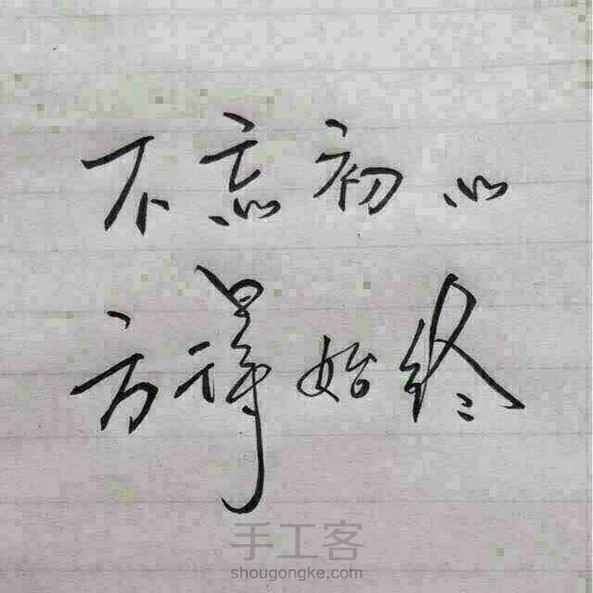 不忘初心
方得始终
手工客
shougongke.com